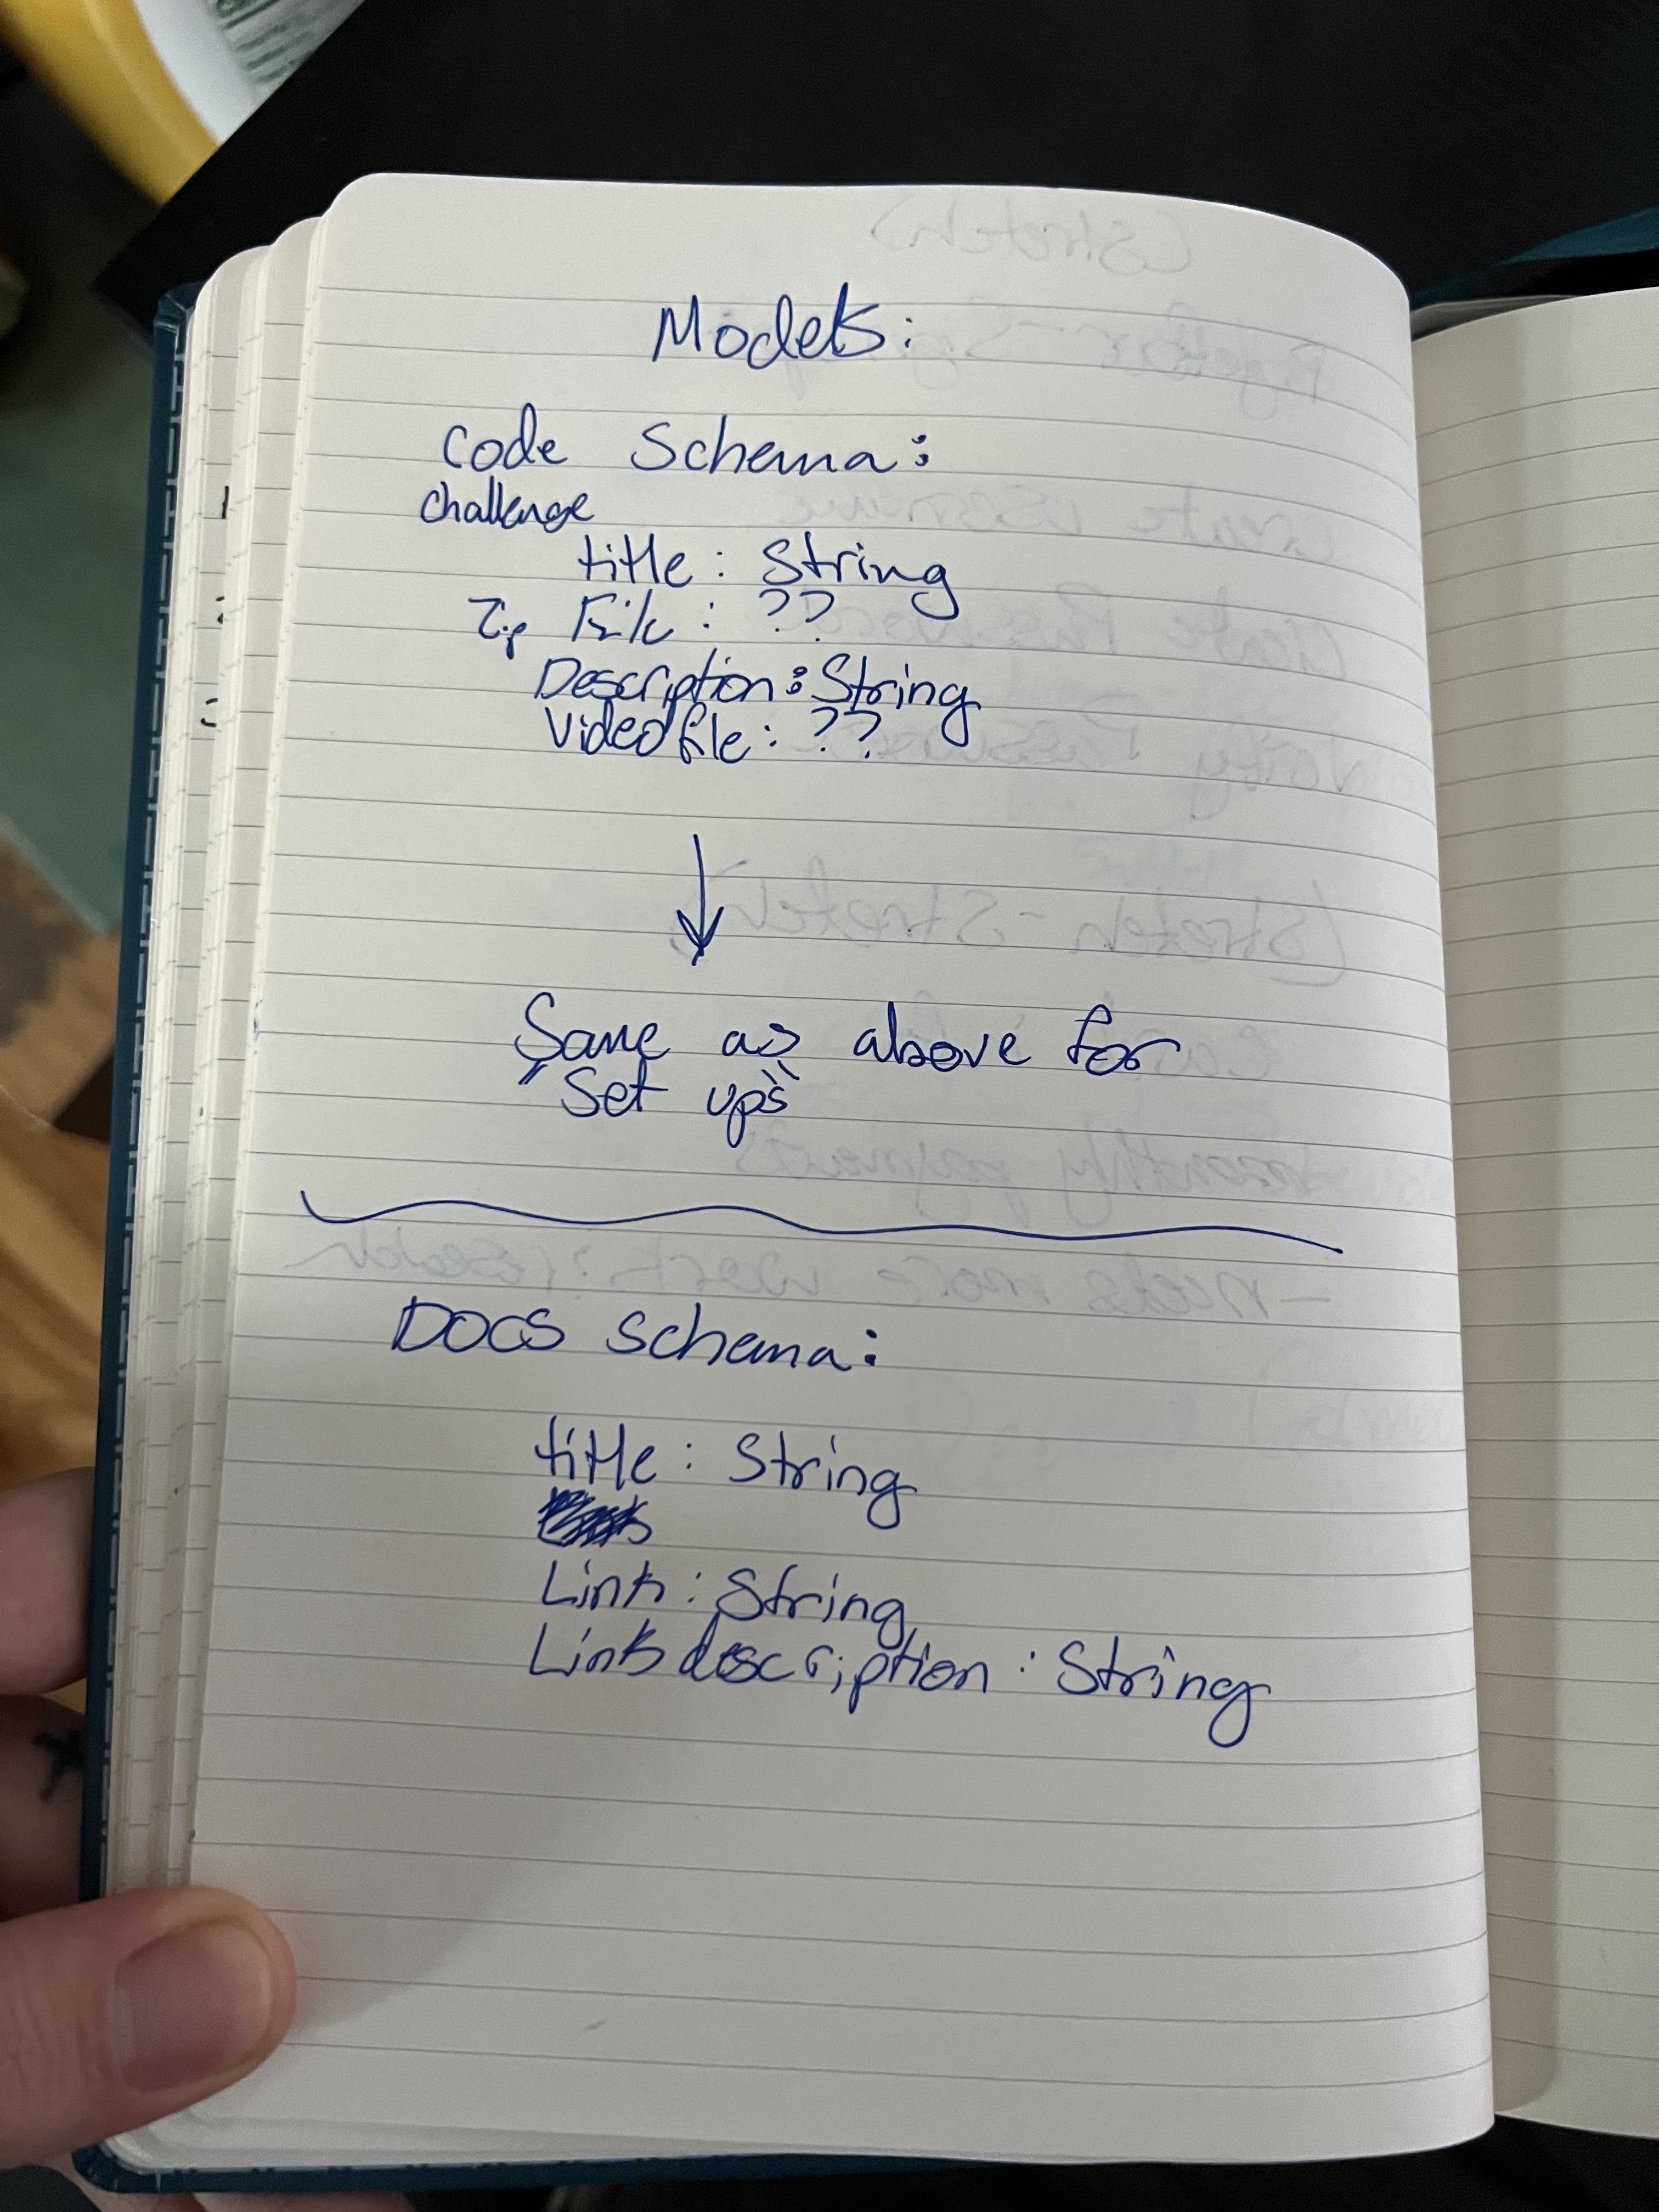 Models:
Code Schema:
Challenge
title: String
Zip File: ??
Description: String
Video file: ??
Same as above for
"Set ups"
DOCS Schema:
title: String
Link: String
Link description: String